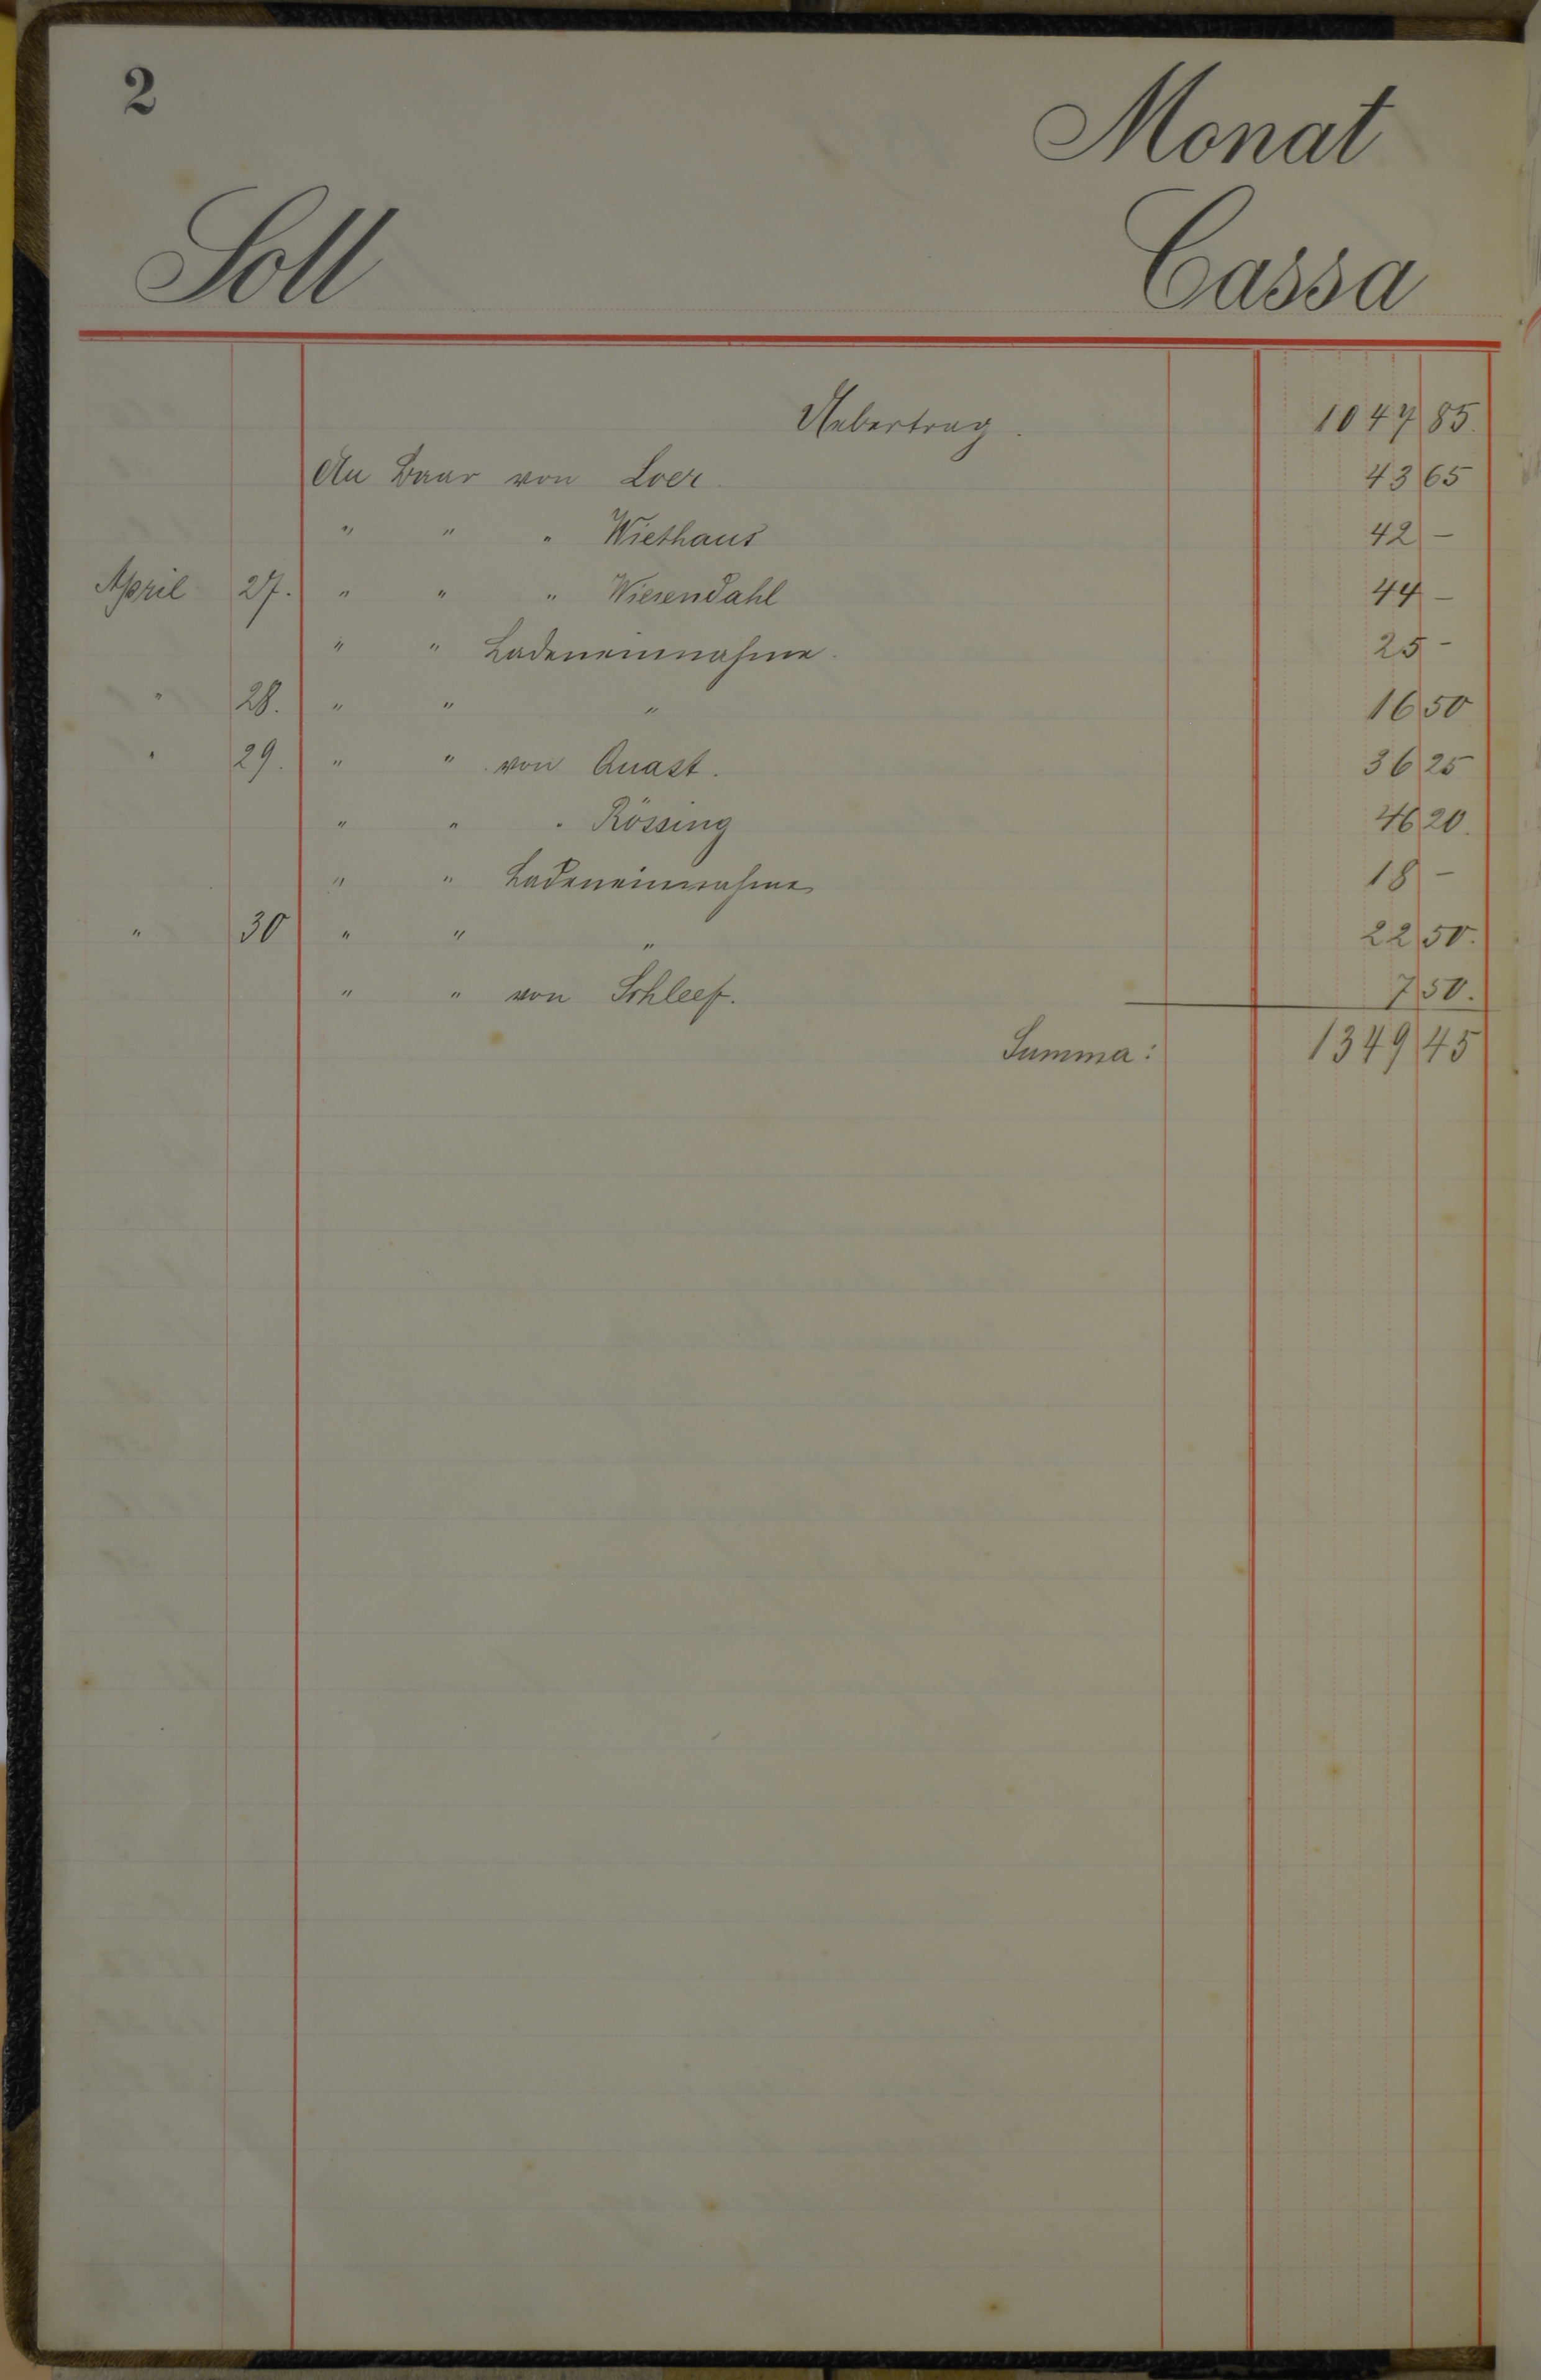 2 Monat
Soll Cassa
Uebertrag. 1047 85.
An Baar von Loer. 43 65
" " " Wiethaus 42 -
April 27. " " " Wiesendahl 44 -
" " Ladeneinnahme. 25 -
" 28. " " " 16 50
" 29. " " von Quast. 36 25
" " " Rössing 46 20.
" " Ladeneinnahme 18 -
" 30 " " " 22 50.
" " von Schleef. 7 50.
Summa: 1349 45